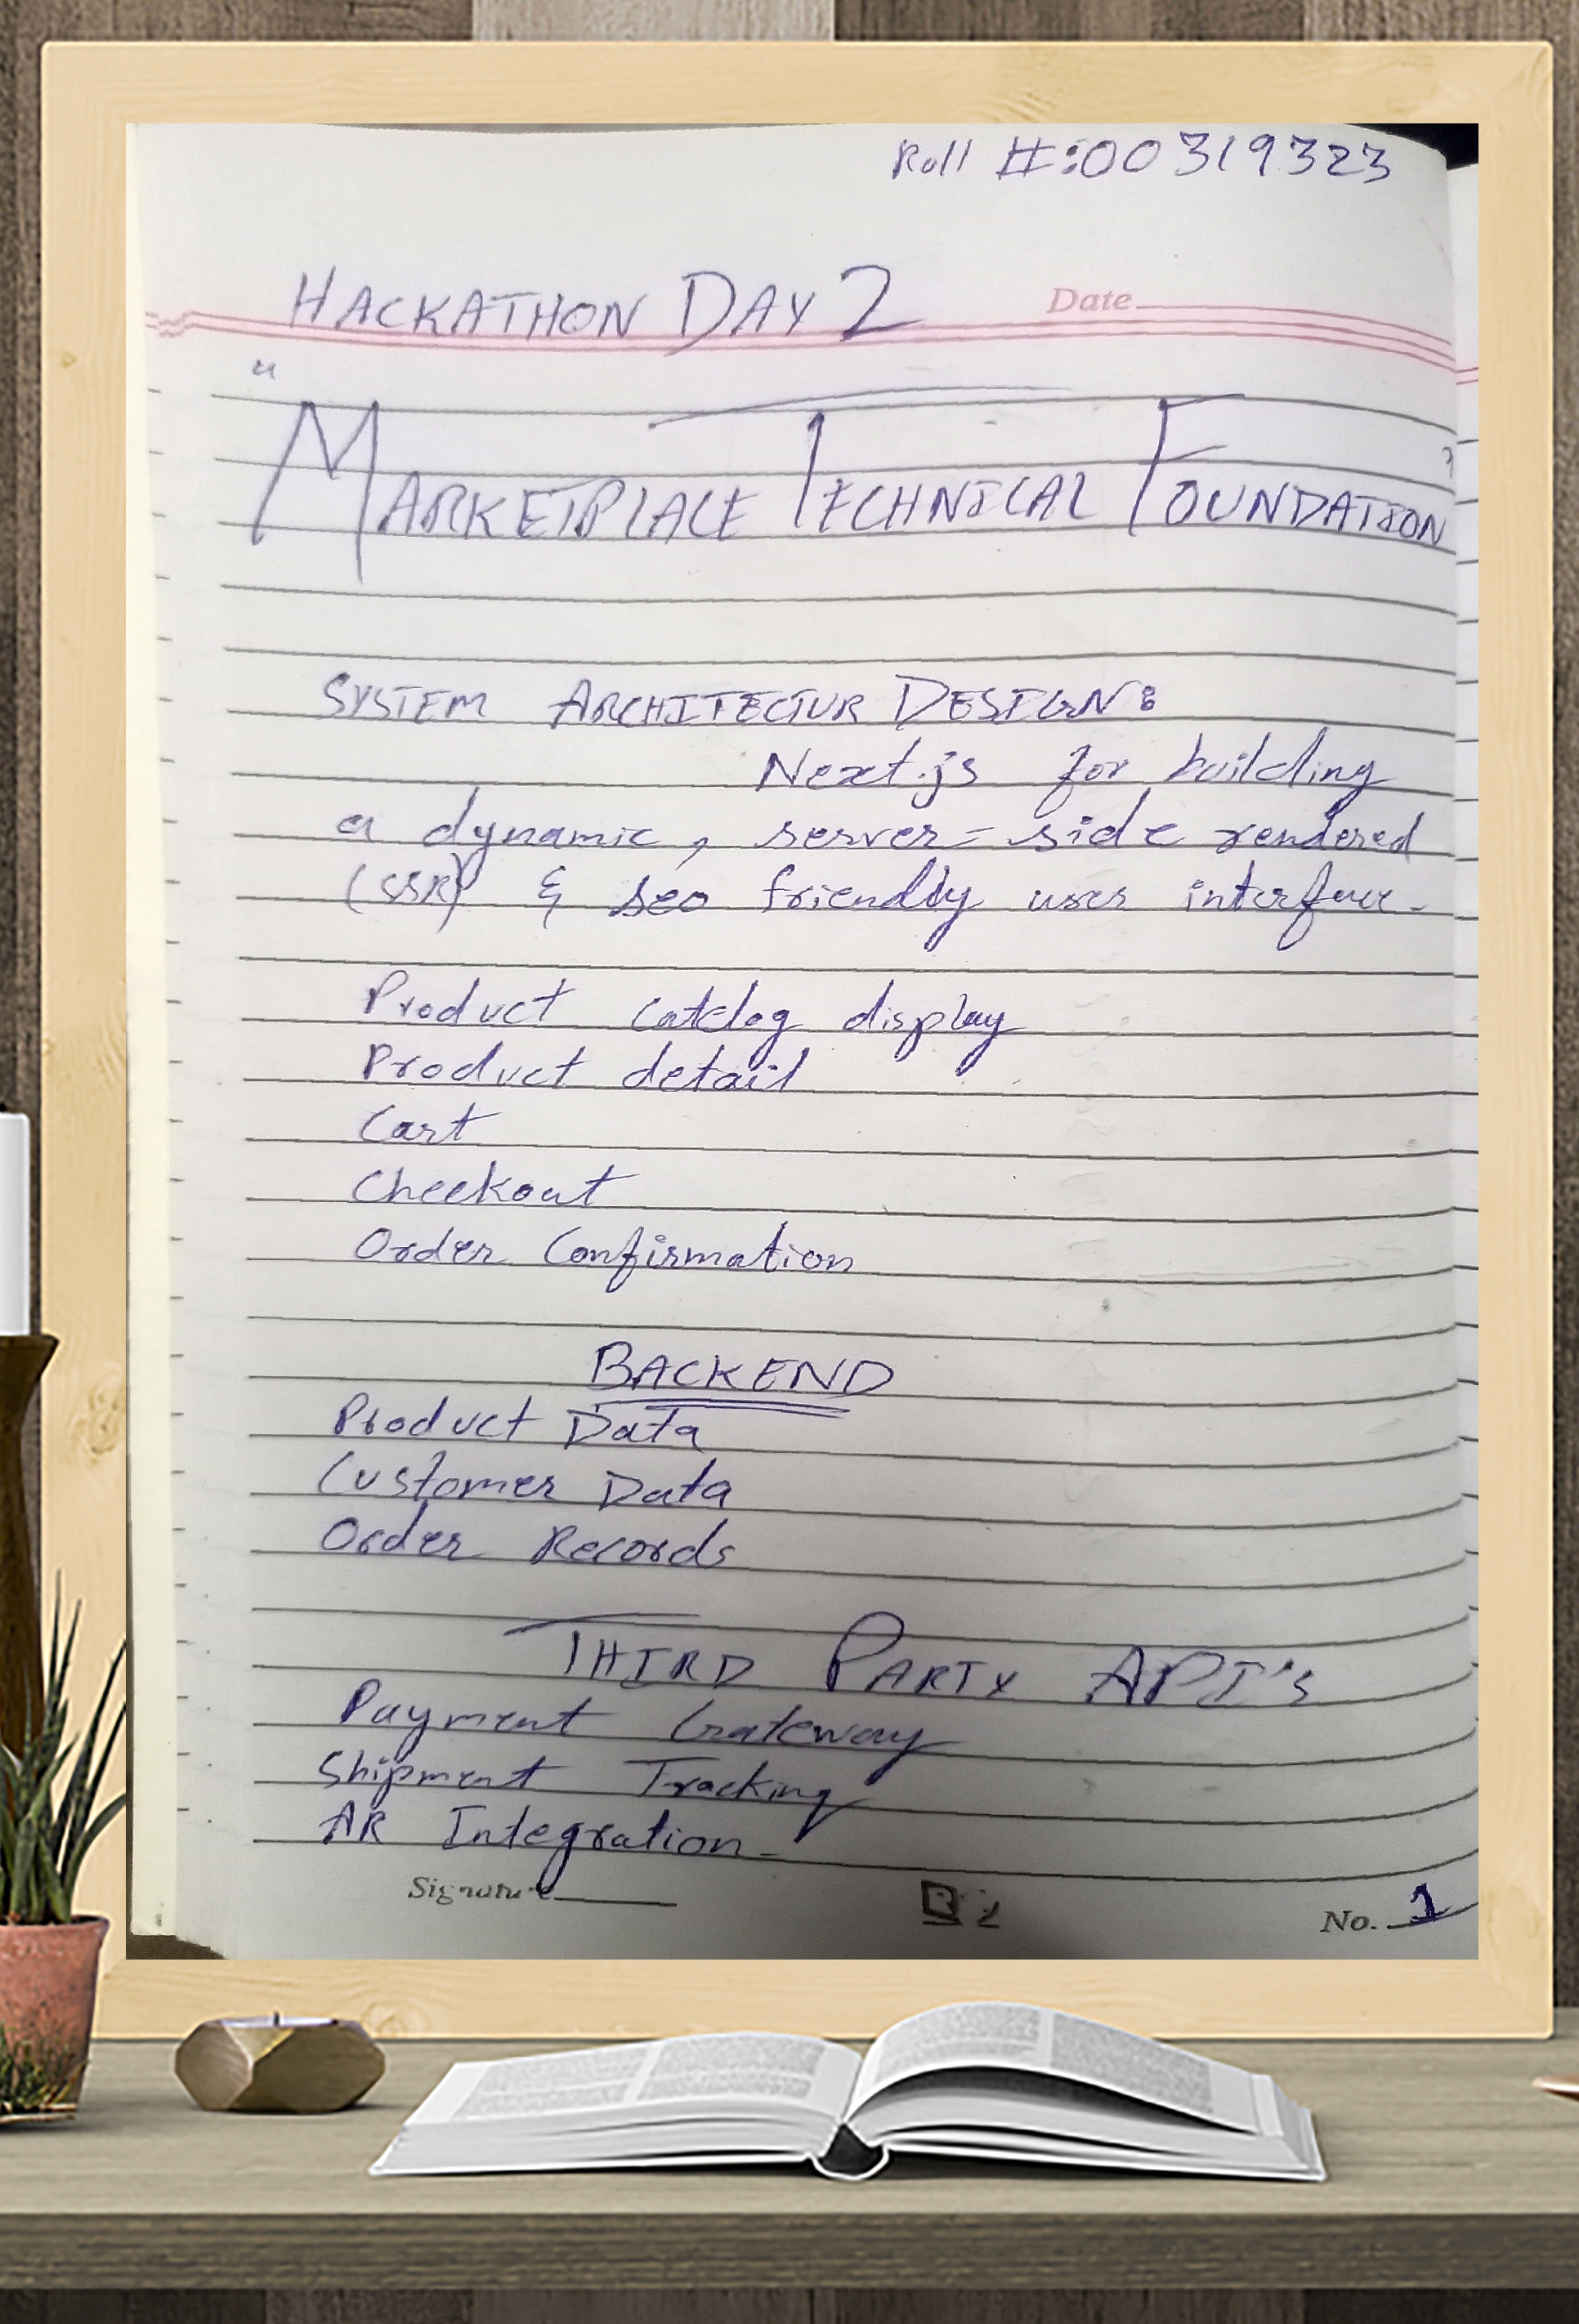 Roll #:00319323
HACKATHON DAY 2
Date
"MARKETPLACE TECHNICAL FOUNDATION"
SYSTEM ARCHITECTUR DESIGN:
Next.js for building
a dynamic, server-side rendered
(SSR) & seo friendly user interface.
Product catelog display
Product detail
Cart
Checkout
Order Confirmation
BACKEND
Product Data
Customer Data
Order Records
THIRD PARTY API's
Payment Gateway
Shipment Tracking
AR Integration
Signature
No. 1